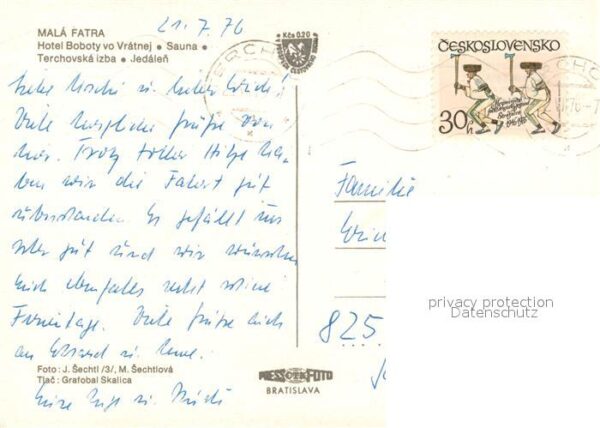 21.7.76
MALÁ FATRA
Hotel Boboty vo Vrátnej • Sauna •
Terchovská izba • Jedáleň
Kčs 0,20
ČESKOSLOVENSKO
30h
Liebe
Viele herzliche Grüße von
hier. Trotz toller Hitze ha-
ben wir die Fahrt gut
überstanden. Es gefällt uns
sehr gut und wir wünschen
Euch ebenfalls recht schöne
Ferientage. Viele Grüße auch
an
Familie
825
privacy protection
Datenschutz
Foto: J. Šechtl /3/, M. Šechtlová
Tlač: Grafobal Skalica
PRESSFOTO
BRATISLAVA
Eure